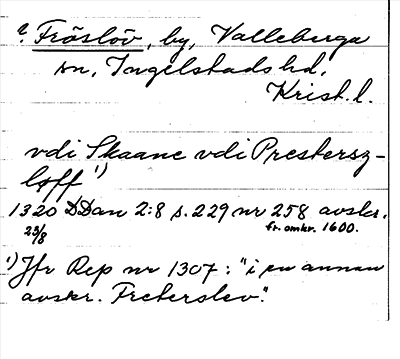 ? Fröslöv, by, Valleberga
sn, Ingelstads hd,
Krist. l.
vdi Skaane vdi Prestersz-
löff 1)
1320 DDan 2:8 s. 229 nr 258 avskr.
23/8 fr. omkr. 1600.
1) Jfr Rep nr 1307: "i en annan
avskr. Freterslev".